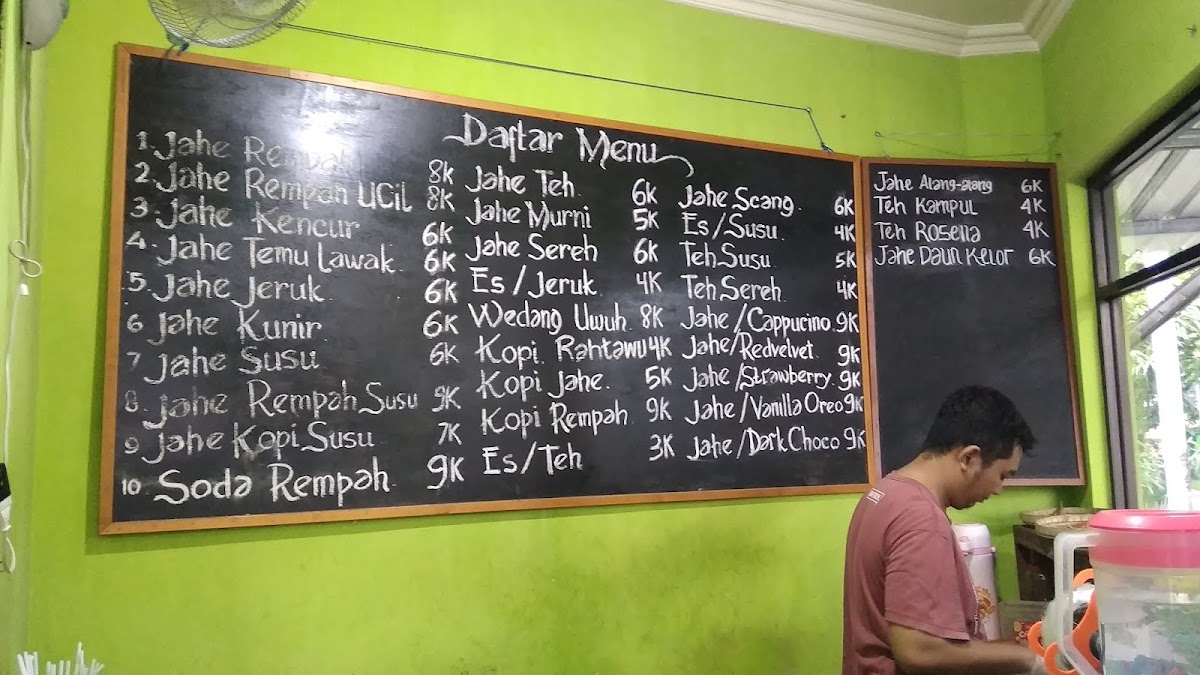 Daftar Menu
1. Jahe Rempah 8K
2. Jahe Rempah UCil 8K
3. Jahe Kencur 6K
4. Jahe Temu Lawak 6K
5. Jahe Jeruk 6K
6 Jahe Kunir 6K
7 Jahe Susu 6K
8. Jahe Rempah Susu 9K
9 Jahe Kopi Susu 7K
10 Soda Rempah 9K
Jahe Teh 6K
Jahe Murni 5K
Jahe Sereh 6K
Es/Jeruk 4K
Wedang Uwuh 8K
Kopi Rahtawu 4K
Kopi Jahe 5K
Kopi Rempah 9K
Es/Teh 3K
Jahe Scang 6K
Es/Susu 4K
Teh Susu 5K
Teh Sereh 4K
Jahe/Cappucino 9K
Jahe/Redvelvet 9K
Jahe/Strawberry 9K
Jahe/Vanilla Oreo 9K
Jahe/Dark Choco 9K
Jahe Alang-alang 6K
Teh Kampul 4K
Teh Rosella 4K
Jahe Daun Kelor 6K